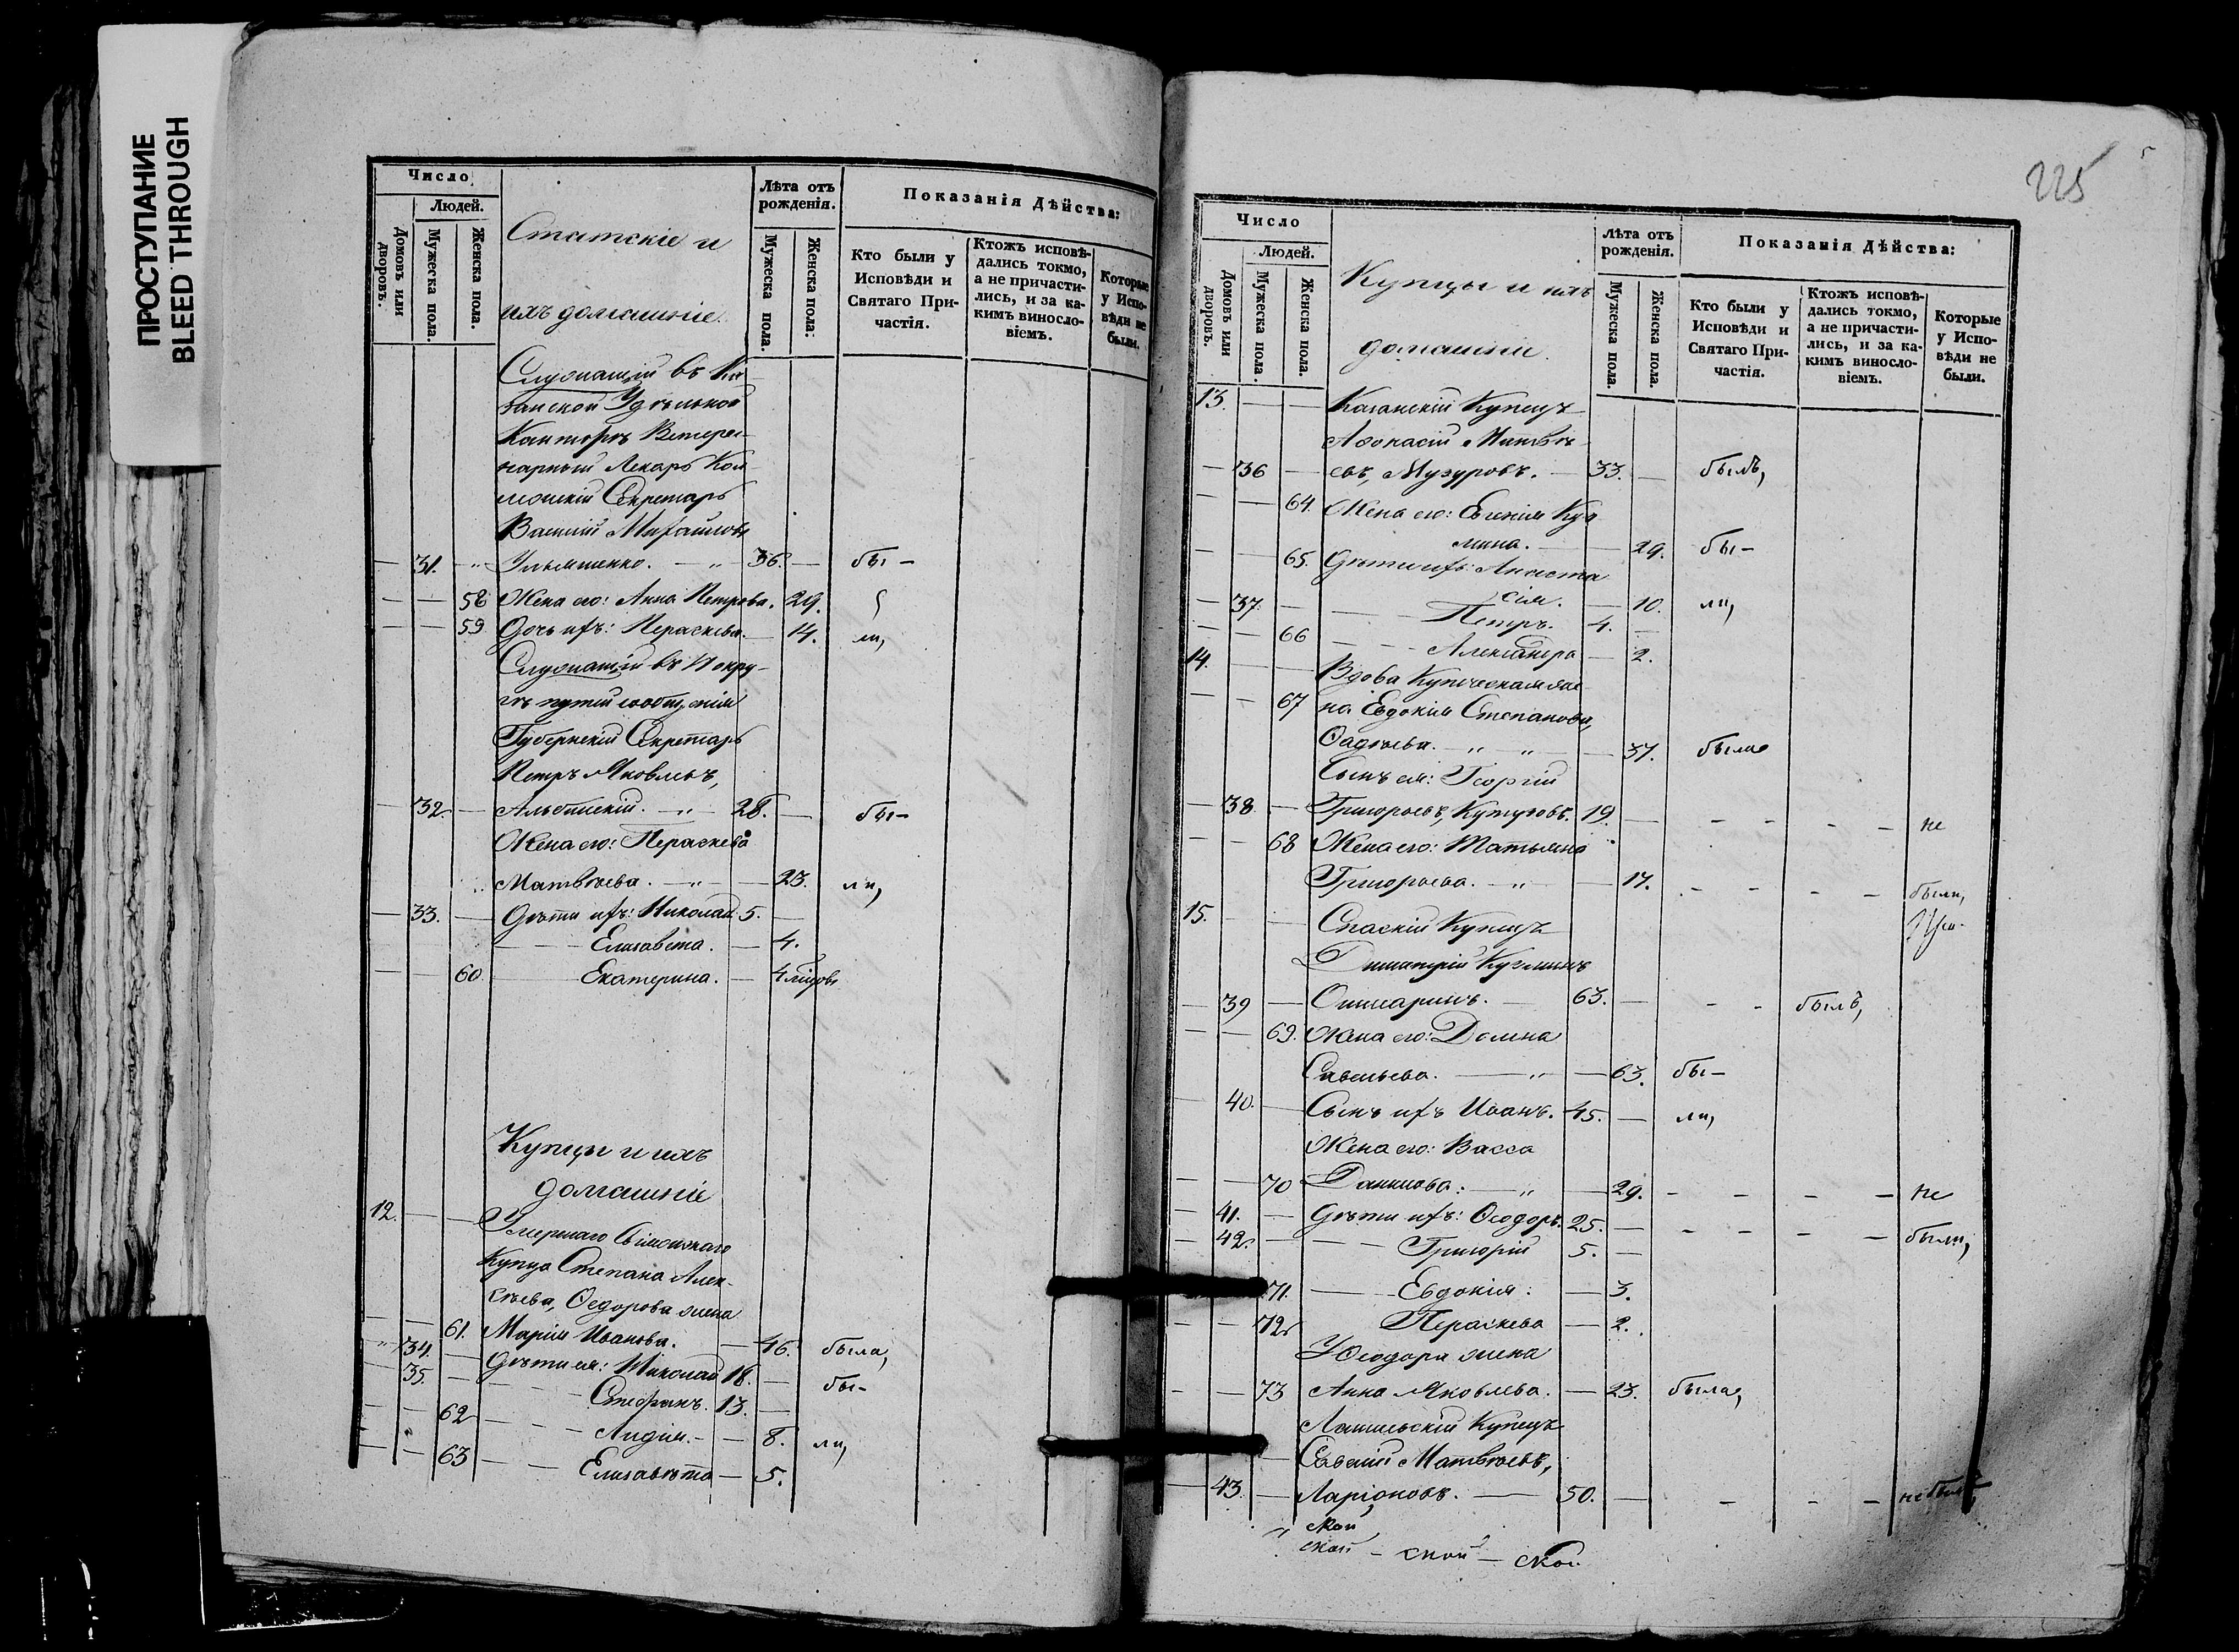 ПРОСТУПАНИЕ
BLEED THROUGH
Число
Людей.
Домовъ или дворовъ.
Мужеска пола.
Женска пола.
Статскіе и
ихъ домашніе.
Лѣта отъ рожденія.
Мужеска пола.
Женска пола:
Показанія Дѣйства:
Кто были у Исповѣди и Святаго Причастія.
Ктожъ исповѣдались токмо, а не причастились, и за какимъ винословіемъ.
Которые у Исповѣди не были.
Служащій въ Ка-
занской Удѣльной
Канторѣ Ветери-
нарный Лекарь Кол-
лежскій Секретарь
Василій Михайловъ
— 31. — Ульяшенко. — 36. — бы-
— — 58 Жена его: Анна Петрова. 29.
— — 59 Дочь ихъ: Параскева. — 14. ли,
Служащій въ округѣ
путей сообщенія
Губернскій Секретарь
Петръ Яковлевъ,
— 32. — Альбинскій. — 28. — бы-
Жена его: Параскева
Матвѣева. — — 23. ли,
— 33. — Дѣти ихъ: Николай 5. —
— Елисавета. — 4.
— — 60 Екатерина. — 4 мѣсяцовъ
Купцы и ихъ
домашніе
12. — — Умершаго
Купца Степана Алек-
сѣева, Ѳедорова жена
— — 61. Марія Иванова. — 46. была,
34. — Дѣти ея: Николай 18. — бы-
35. — Стефанъ. 13. —
— — 62 — Лидія. — 8. ли,
— — 63 — Елисавета — 5.
225
Число
Людей.
Домовъ или дворовъ.
Мужеска пола.
Женска пола.
Купцы и ихъ
домашніе.
Лѣта отъ рожденія.
Мужеска пола.
Женска пола.
Показанія Дѣйства:
Кто были у Исповѣди и Святаго Причастія.
Ктожъ исповѣдались токмо, а не причастились, и за какимъ винословіемъ.
Которые у Исповѣди не были.
13. — — Казанскій Купецъ
Аѳонасій Матвѣ-
— 36 — евъ, Музуровъ. — 33. — былъ,
— — 64. Жена его: Евгенія Куз
мина. — — 29. бы-
— — 65. Дѣти ихъ: Анаста
сія. — 10. ли,
— 37. — Петръ. 4. —
— — 66 — Александра — 2.
14. — — Вдова Купеческая же-
— — 67 на Евдокія Степанова,
Ѳадѣева. — — 37. была
Сынъ ея: Георгій
— 38. — Григорьевъ, Кутузовъ. 19. — — — — — не
— — 68 Жена его: Татьяна
Григорьева. — — 17. — — — — были,
15. — — Спаскій Купецъ
Димитрій Кузминъ
— 39 — — 63. — — — былъ,
— — 69. Жена его: Домна
Савельева. — — 63. бы-
— 40. — Сынъ ихъ Иванъ. 45. — ли,
Жена его: Васса
— — 70 Данилова: — — 29. — — — — не
— 41. — Дѣти ихъ: Ѳеодоръ. 25. — — — — — были,
— 42. — Григорій 5. —
71. — Евдокія: — 3.
— — 72 Параскева — 2.
У Ѳеодора жена
— — 73 Анна Яковлева. — 23. была,
Лаишевскій Купецъ
Матвѣевъ,
— 43. — Ларіоновъ. — 50. — — — — не былъ,
ской
ской — ской — ской